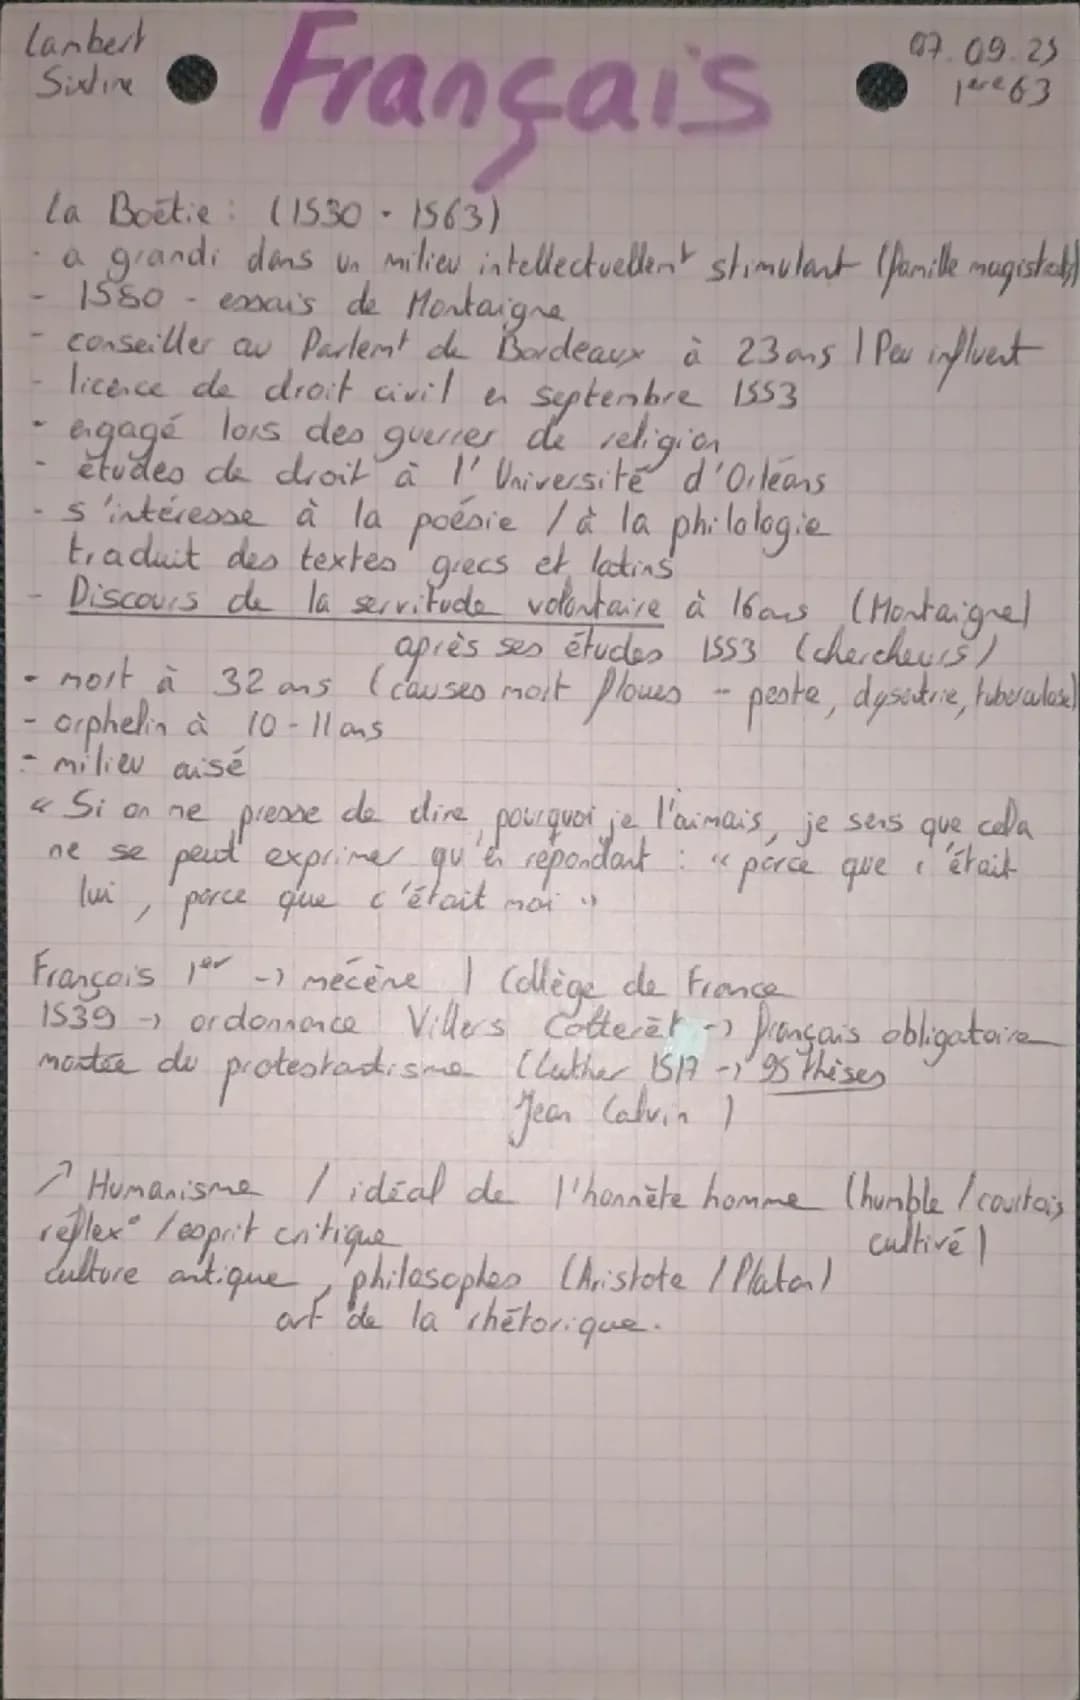 Lambert
Sixtine
Français
07.09.25
1ère G3
La Boétie : (1530 - 1563)
- a grandi dans un milieu intellectuellent stimulant (famille magistrats)
- 1580 - essais de Montaigne
- conseiller au Parlemt de Bordeaux à 23 ans | Peu influent
- licence de droit civil en septembre 1553
- engagé lors des guerres de religion
- études de droit à l'Université d'Orléans
- s'intéresse à la poésie / à la philologie
traduit des textes grecs et latins
- Discours de la servitude volontaire à 16 ans (Montaigne)
après ses études 1553 (chercheurs)
- mort à 32 ans (causes mort floues - peste, dysentrie, tuberculose)
- orphelin à 10 - 11 ans
- milieu aisé
« Si on me presse de dire, pourquoi je l'aimais, je sens que cela
ne se peut exprimer qu'en répondant : « parce que c'était
lui, parce que c'était moi »
François 1er -> mécène | Collège de France
1539 -> ordonnance Villers Cotterêt -> français obligatoire
montée du protestantisme (Luther 1517 -> 95 thèses
Jean Calvin)
↗ Humanisme / idéal de l'honnête homme (humble / courtois
réflex° / esprit critique
cultivé)
culture antique, philosophes (Aristote / Platon)
art de la rhétorique.